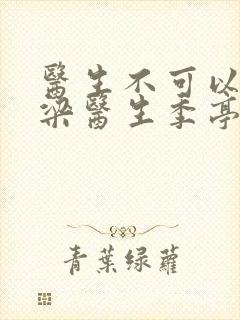 醫生不可以
梁醫生季亭
青葉绿蘿